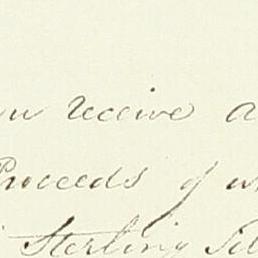 receive a
Proceeds of
Sterling